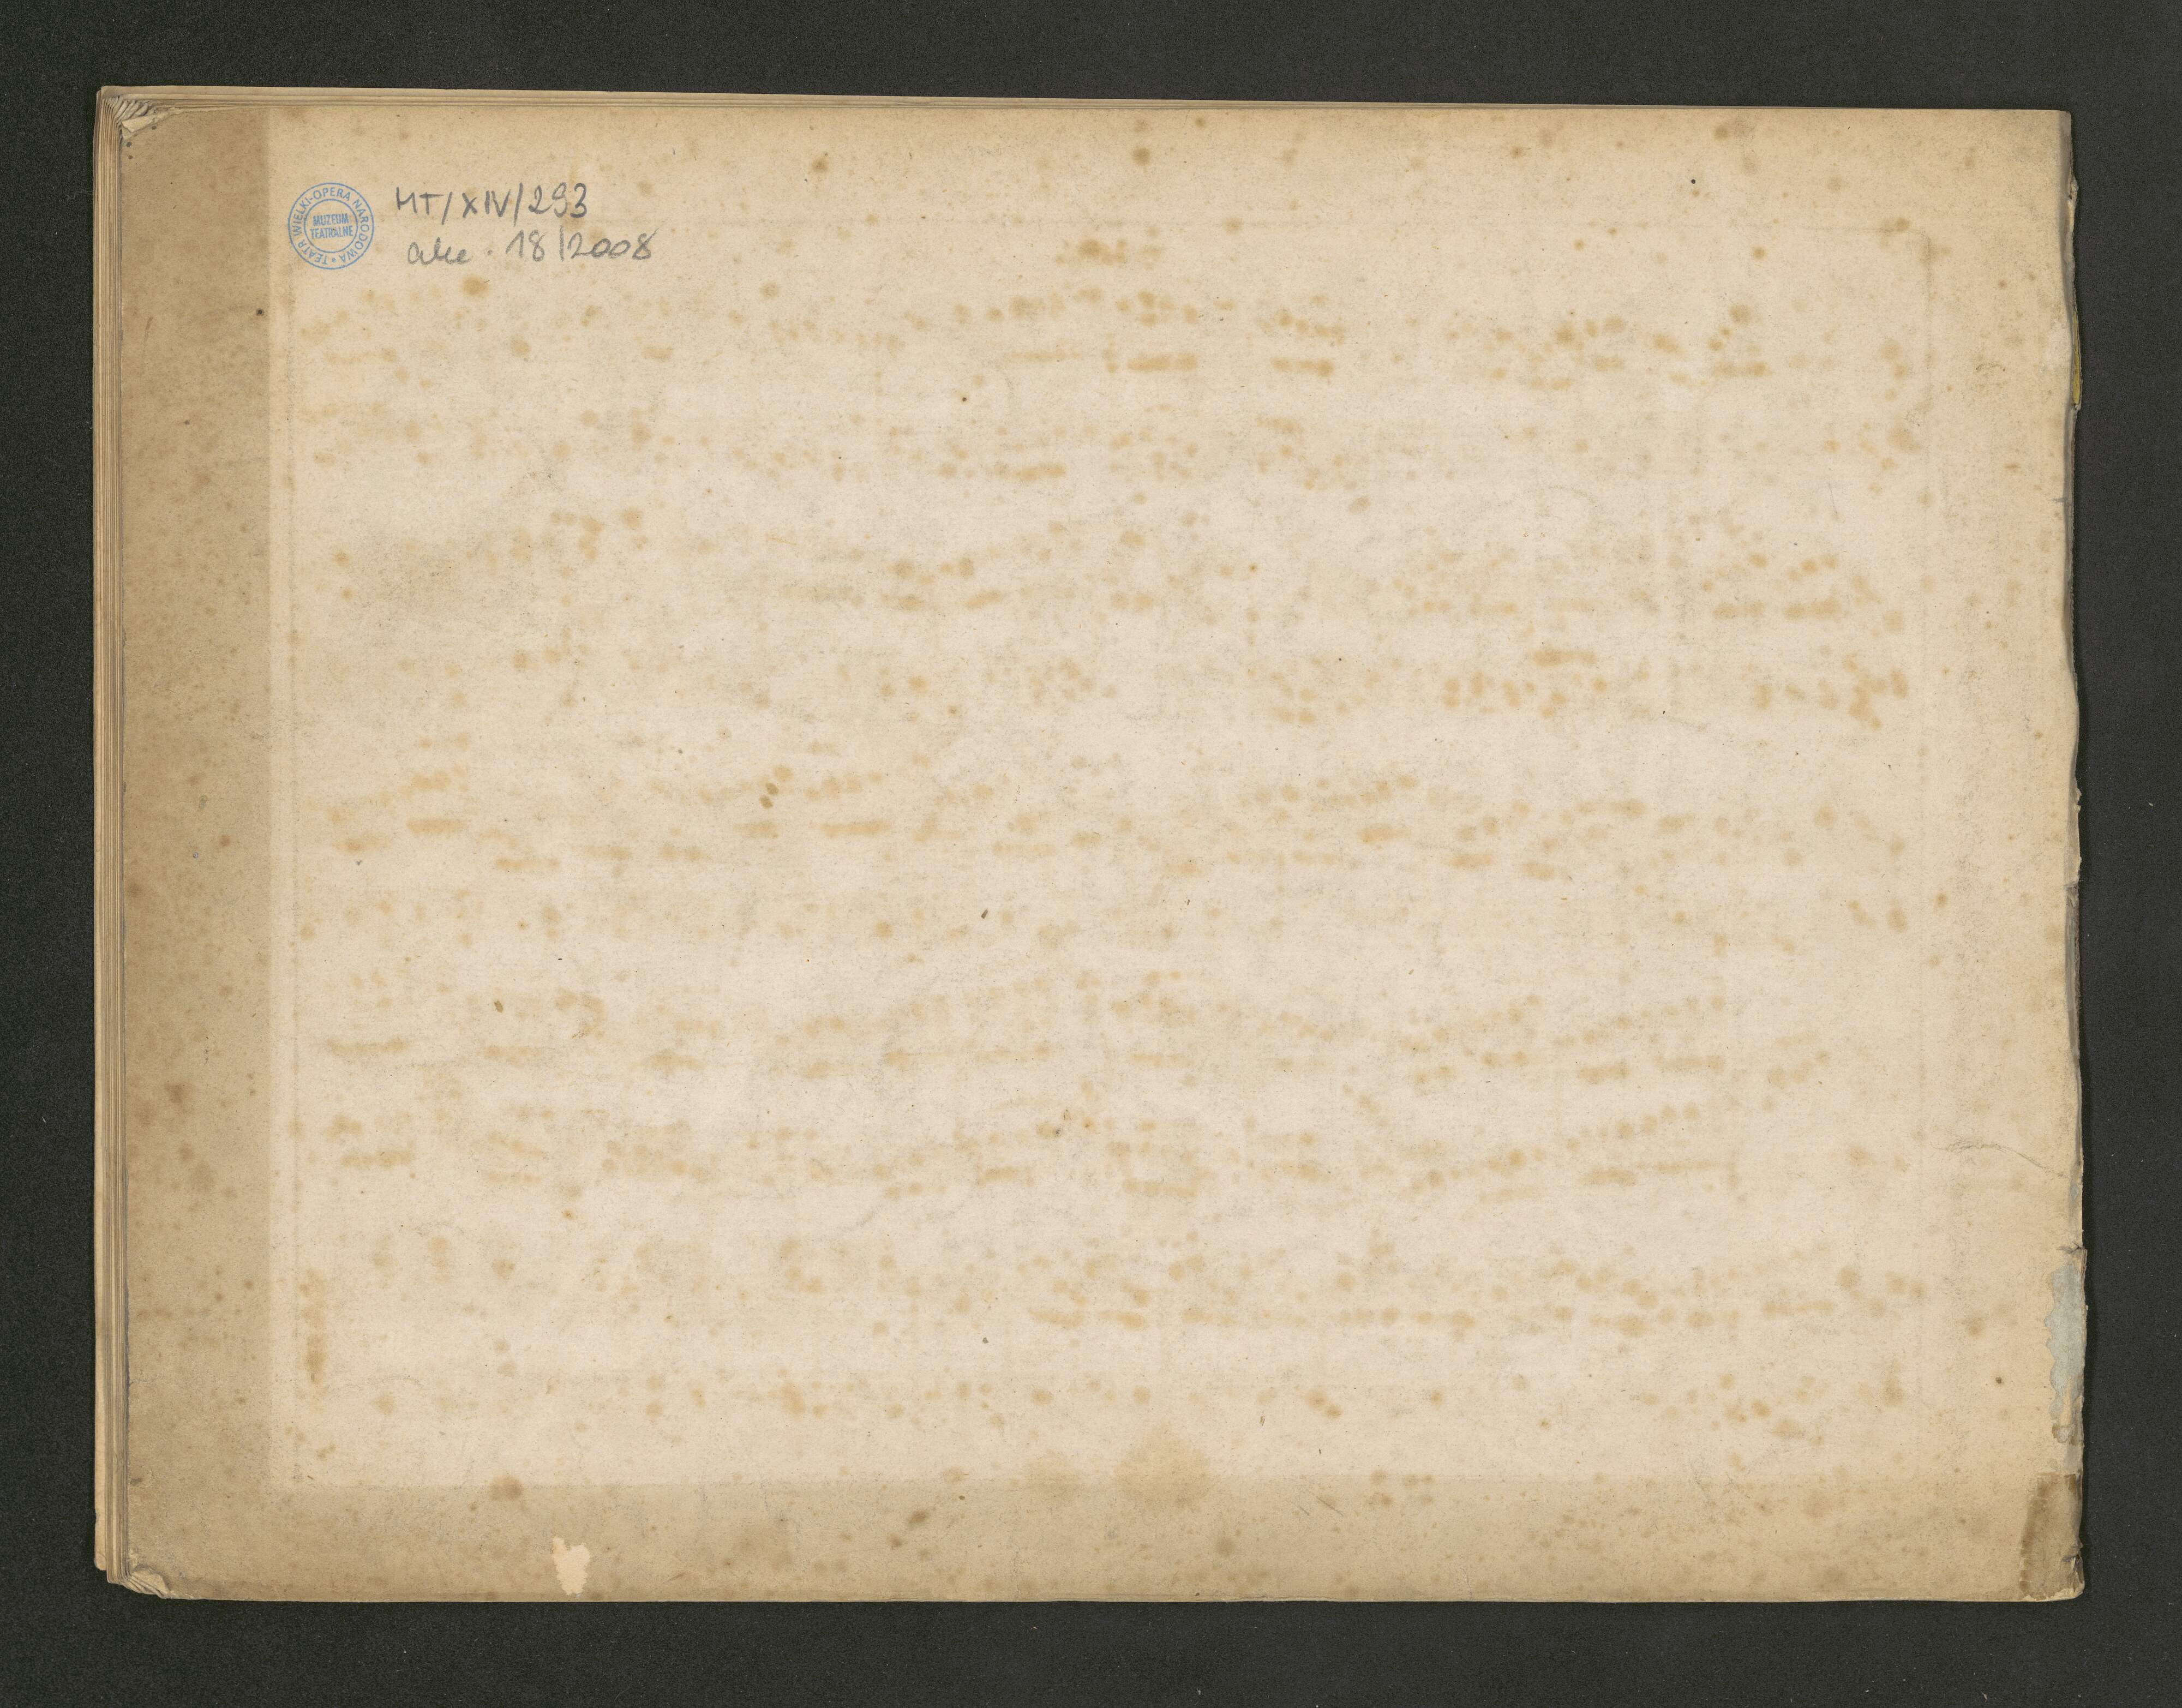 TEATR WIELKI-OPERA NARODOWA
MUZEUM
TEATRALNE
MT/XIV/293
akc. 18/2008